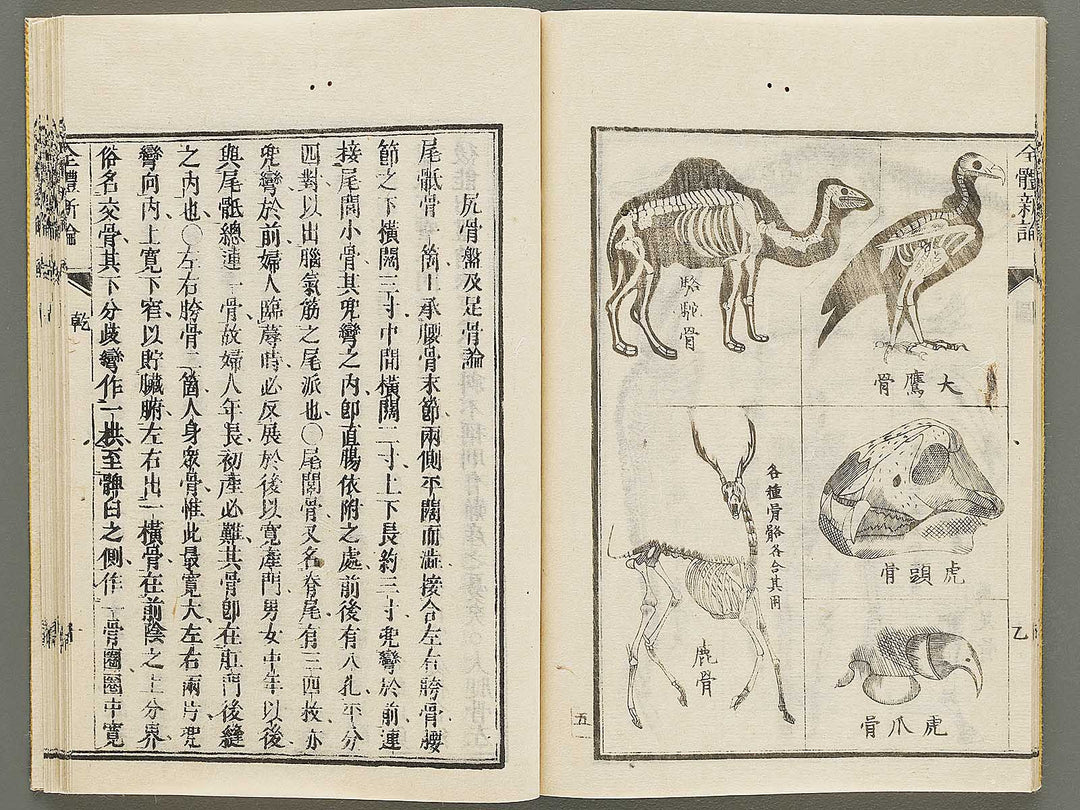 全體新論
乙
大鷹骨
駱駝骨
虎頭骨
各種骨骼各合其用
鹿骨
虎爪骨
五
尻骨盤及足骨論
尾骶骨一箇上承腰骨末節兩側平闊而澁接合左右胯骨腰
節之下橫闊三寸中間橫闊二寸上下長約三寸兜彎於前連
接尾閭小骨其兜彎之內卽直腸依附之處前後有八孔平分
四對以出腦氣筋之尾派也〇尾閭骨又名脊尾有三四枚亦
兜彎於前婦人臨蓐時必反展於後以寬產門男女中年以後
與尾骶總連一骨故婦人年長初產必難其骨卽在肛門後縫
之內也〇左右胯骨二箇人身衆骨惟此最寬大左右兩片兜
彎向內上寬下窄以貯臟腑左右出一橫骨在前陰之上分界
俗名交骨其下分歧彎作一拱至髀臼之側作一骨圈圈中寬
全體新論
乾